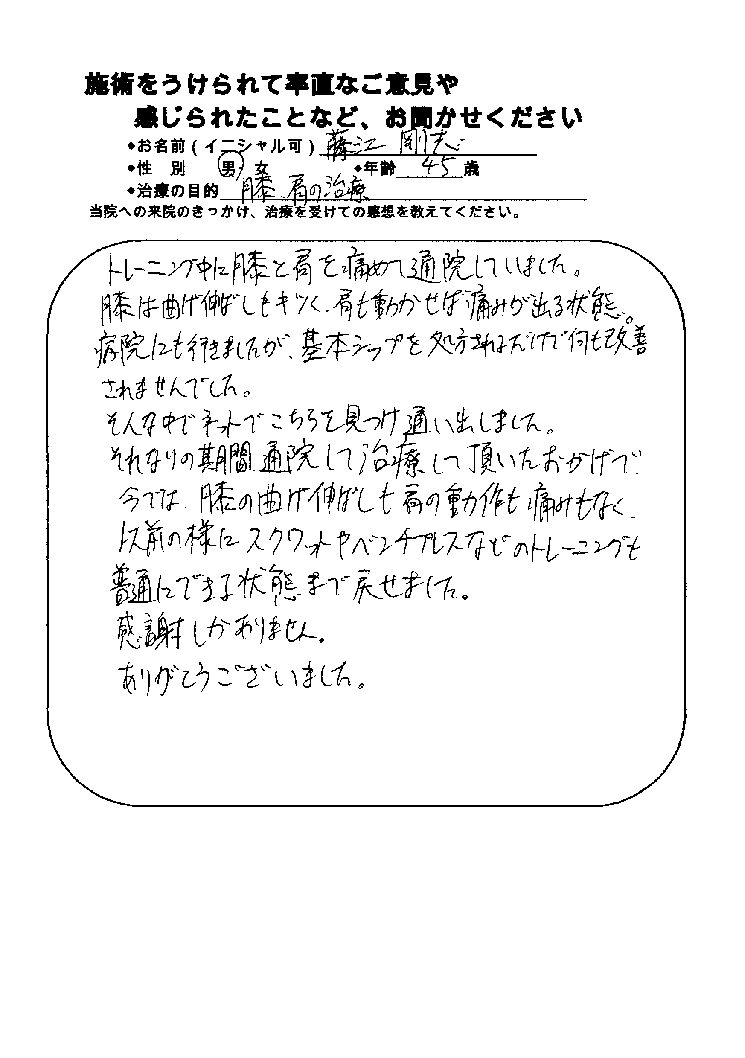 施術をうけられて率直なご意見や
感じられたことなど、お聞かせください
◆お名前(イニシャル可) 藤江 剛志
◆性 別 男・女 ◆年齢 45 歳
◆治療の目的 膝 肩の治療
当院への来院のきっかけ、治療を受けての感想を教えてください。
トレーニング中に膝と肩を痛めて通院していました。
膝は曲げ伸ばしもキツく、肩も動かせば痛みが出る状態。
病院にも行きましたが、基本シップを処方されただけで何も改善
されませんでした。
そんな中でネットでこちらを見つけ通い出しました。
それなりの期間通院して治療して頂いたおかげで
今では、膝の曲げ伸ばしも肩の動作も痛みもなく、
以前の様にスクワットやベンチプレスなどのトレーニングも
普通にできる状態まで戻せました。
感謝しかありません。
ありがとうございました。